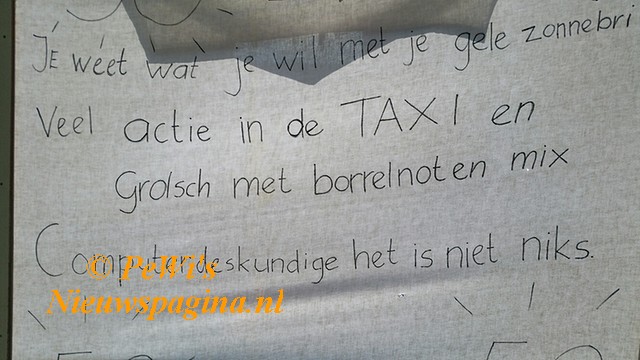 JE weet wat je wil met je gele zonnebri
Veel actie in de TAXI en
Grolsch met borrelnoten mix
Computerdeskundige het is niet niks.
© PeWi's
Nieuwspagina.nl